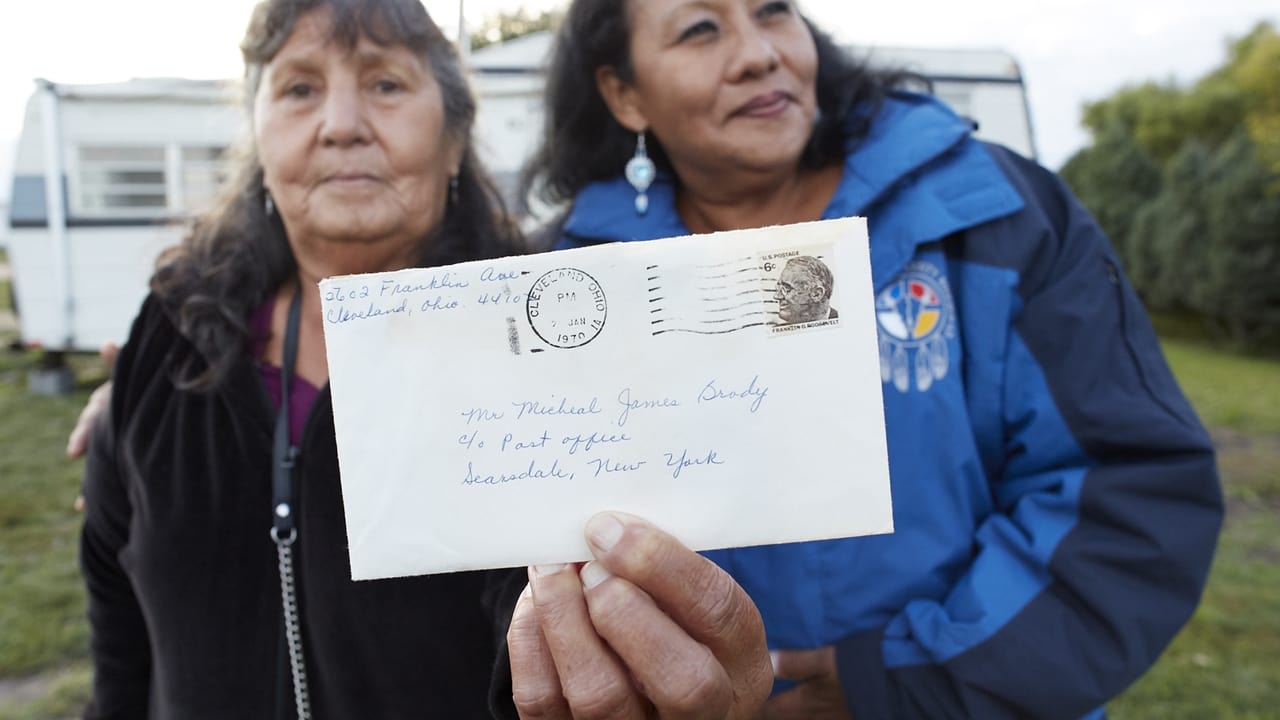 2602 Franklin Ave
Cleveland, Ohio.
CLEVELAND OHIO
PM
JAN
1970
U.S. POSTAGE
6¢
FRANKLIN D. ROOSEVELT
Mr Micheal James Brody
c/o Post office
Scarsdale, New York